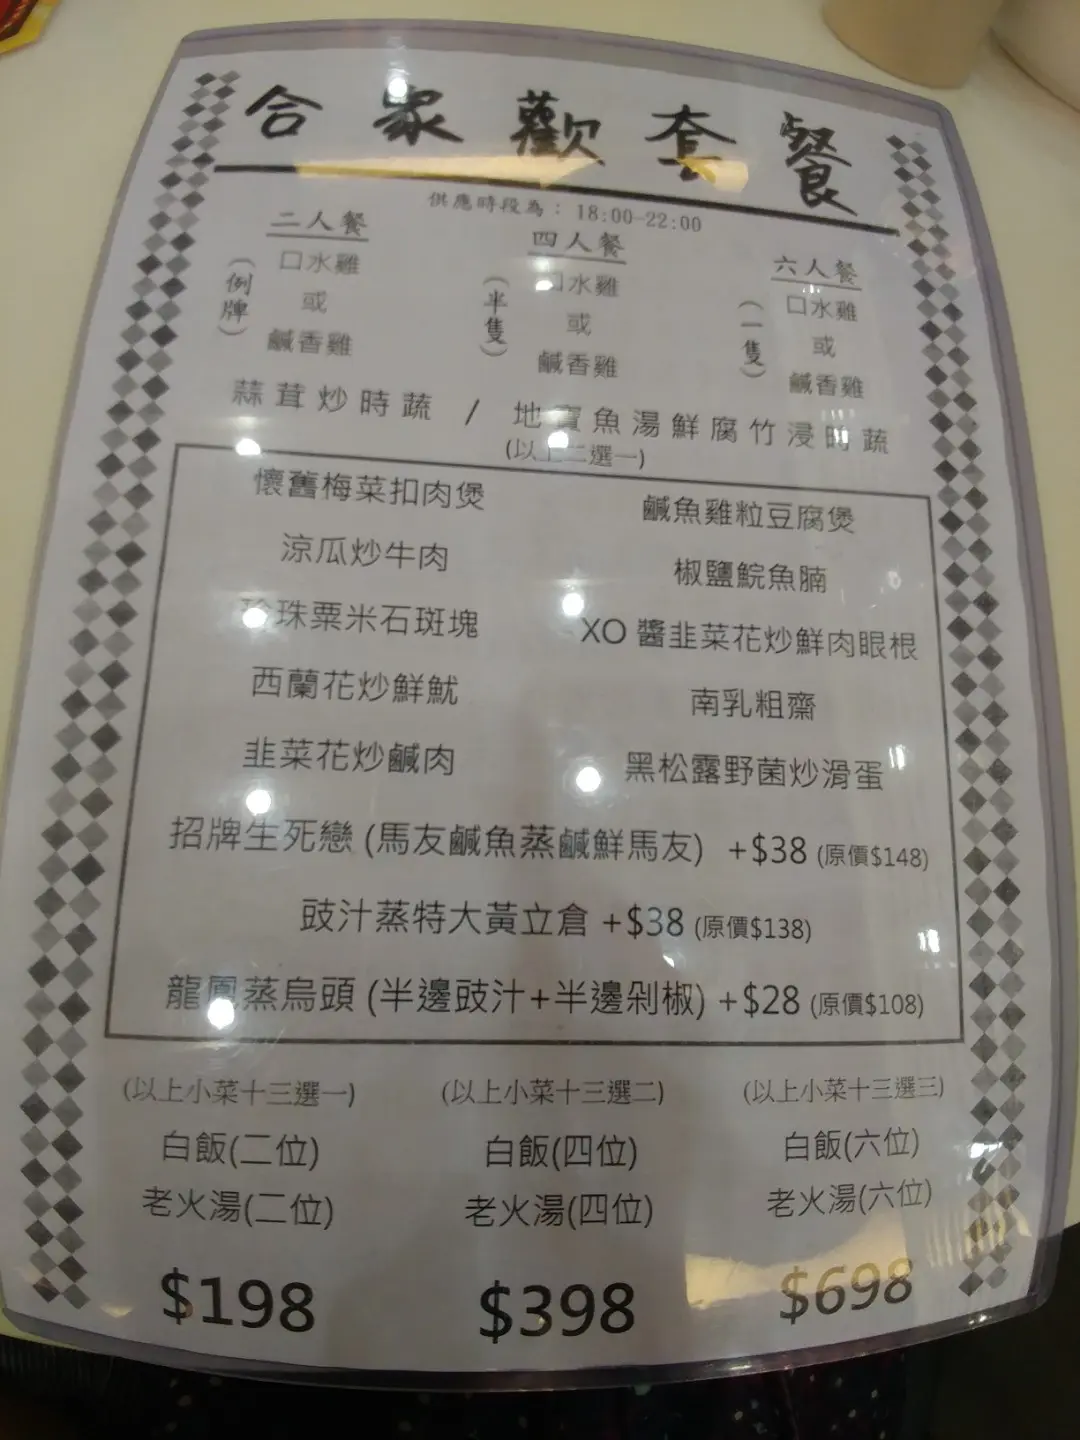 合家歡套餐
供應時段為：18:00-22:00
二人餐
(例牌)
口水雞
或
鹹香雞
四人餐
(半隻)
口水雞
或
鹹香雞
六人餐
(一隻)
口水雞
或
鹹香雞
蒜茸炒時蔬 / 地寶魚湯鮮腐竹浸時蔬
(以上二選一)
懷舊梅菜扣肉煲 鹹魚雞粒豆腐煲
涼瓜炒牛肉 椒鹽鯇魚腩
珍珠粟米石斑塊 XO 醬韭菜花炒鮮肉眼根
西蘭花炒鮮魷 南乳粗齋
韭菜花炒鹹肉 黑松露野菌炒滑蛋
招牌生死戀 (馬友鹹魚蒸鹹鮮馬友) +$38 (原價$148)
豉汁蒸特大黃立倉 +$38 (原價$138)
龍鳳蒸烏頭 (半邊豉汁+半邊剁椒) +$28 (原價$108)
(以上小菜十三選一) (以上小菜十三選二) (以上小菜十三選三)
白飯(二位) 白飯(四位) 白飯(六位)
老火湯(二位) 老火湯(四位) 老火湯(六位)
$198 $398 $698